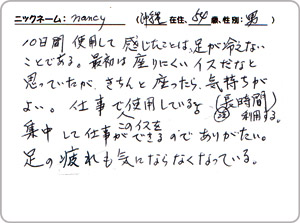 ニックネーム: nancy (沖縄 在住、54 歳、性別: 男 )
10日間 使用して 感じたことは、足が冷えない
ことである。最初は座りにくいイスだなと
思っていたが、きちんと座ったら、気持ちが
よい。仕事で使用しているよ (長時間
人 このイスを 注 利用する。
集中して仕事ができるのでありがたい。
足の疲れも気にならなくなっている。